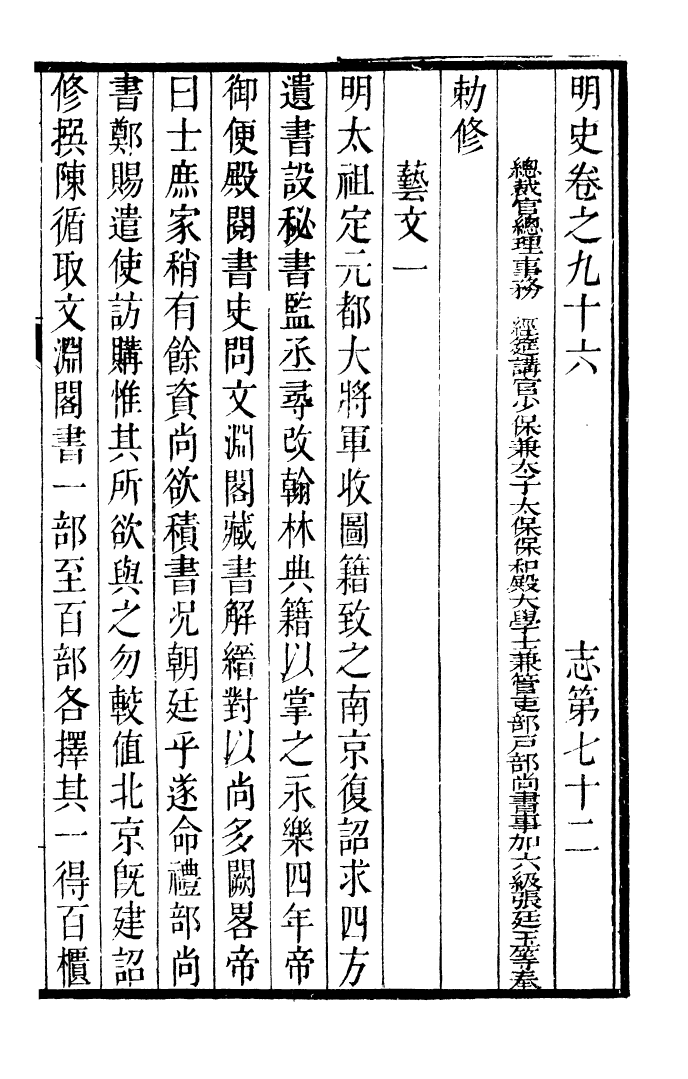 明史卷之九十六　志第七十二
總裁官總理事務　經筵講官少保兼太子太保保和殿大學士兼管吏部戶部尚書事加六級張廷玉等奉
勅修
藝文一
明太祖定元都大將軍收圖籍致之南京復詔求四方
遺書設秘書監丞尋改翰林典籍以掌之永樂四年帝
御便殿閱書史問文淵閣藏書解縉對以尚多闕畧帝
曰士庶家稍有餘資尚欲積書况朝廷乎遂命禮部尚
書鄭賜遣使訪購惟其所欲與之勿較值北京旣建詔
修撰陳循取文淵閣書一部至百部各擇其一得百櫃